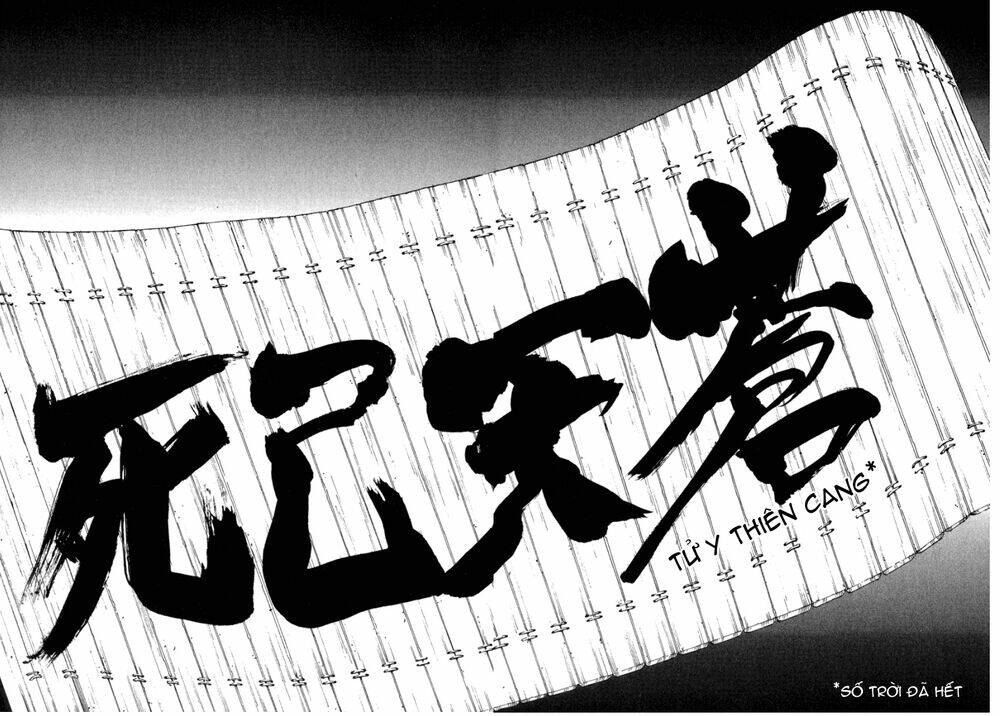 死已天蒼
TỬ Y THIÊN CANG*
*SỐ TRỜI ĐÃ HẾT